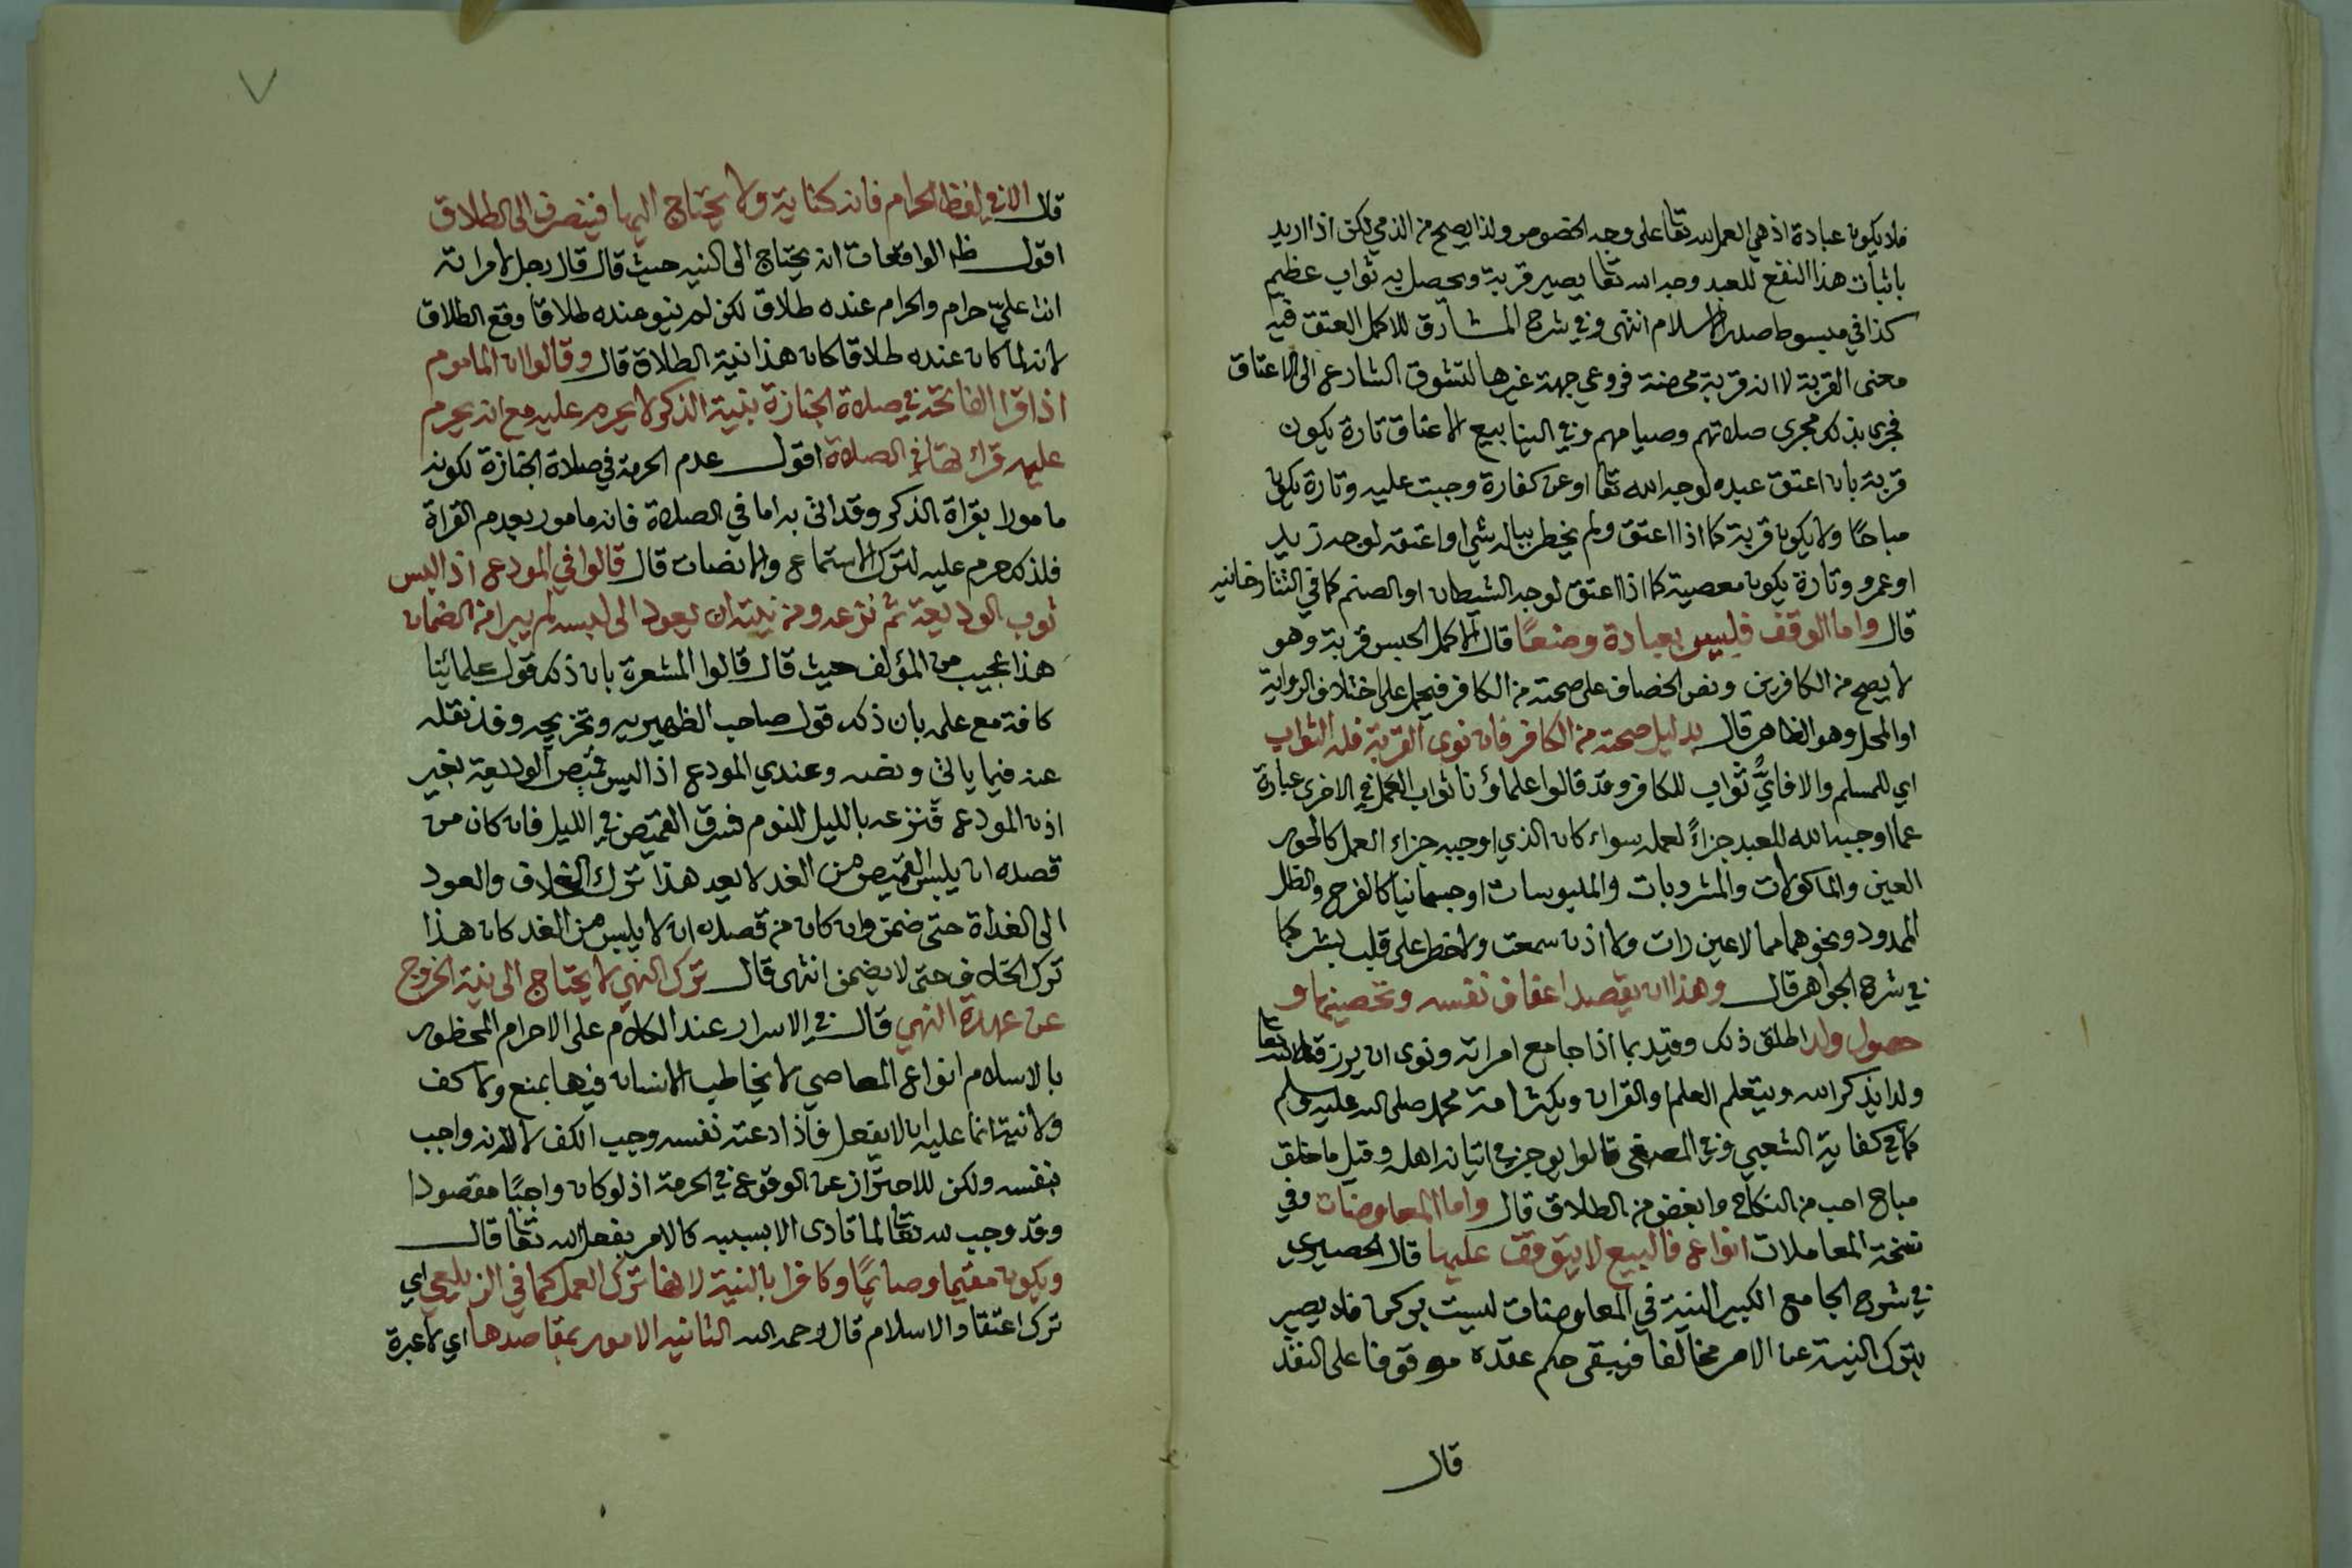 فلا يكون عبادة اذ هي العمل لله تعا على وجه الخصوص ولذا يصح من الذمي لكن اذا اريد
باثبات هذا النفع للعبد وجه الله تعا يصير قربة ويحصل به ثواب عظيم
كذا في مبسوط صدر الاسلام انتهى وفي شرح المشارق للاكمل العتق فيه
معنى القربة لا انه قربة محضة فروعي جهة غيرها لتشوق الشارع الى الاعتاق
فجرى بذلك مجرى صلاتهم وصيامهم وفي الينابيع الاعتاق تارة يكون
قربة بان اعتق عبده لوجه الله تعا او عن كفارة وجبت عليه وتارة يكون
مباحًا ولا يكون قربة كما اذا اعتق ولم يخطر بباله شئ او اعتقه لوجه زيد
او عمرو وتارة يكون معصية كما اذا اعتق لوجه الشيطان او الصنم كما في التتارخانيه
قال واما الوقف فليس بعبادة وضعًا قال الاكمل الحبس قربة وهو
لا يصح من الكافرين ونص الخصاف على صحته من الكافر فيحمل على اختلاف الرواية
او المحل وهو الظاهر قال بدليل صحته من الكافر فان نوى القربة فله الثواب
اي للمسلم والا فايُّ ثواب للكافر وقد قالوا علماؤنا ثواب العمل في الاخرى عبارة
عما اوجبه الله للعبد جزاءً لعمله سواء كان الذي اوجبه جزاء العمل كالحور
العين والماكولات والمشروبات والملبوسات او جسمانيا كالفرح والظل
الممدود ونحوهما مما لا عين رات ولا اذن سمعت ولا خطر على قلب بشر كما
في شرح الجواهر قال وهذا ان يقصد اعفاف نفسه وتحصينها و
حصول ولد اطلق ذلك وقيد بما اذا جامع امراته ونوى ان يرزقه الله تعا
ولدا يذكر الله ويتعلم العلم والقران ويكثر امة محمد صلى الله عليه وسلم
كما في كفاية الشعبي وفي المصفى قالوا يوجر في اتيانه اهله وقيل ما خلق
مباح احب من النكاح وابغض من الطلاق قال واما المعاوضات وفي
نسخة المعاملات انواع فالبيع لا يتوقف عليها قال الحصيري
في شرح الجامع الكبير النية في المعاوضات ليست بركن فلا يصير
بترك النية عن الامر مخالفا فيبقى حكم عقده موقوفا على النقد
قال
قال الا في لفظ الحرام فانه كناية ولا يحتاج اليها فينصرف الى الطلاق
اقول ظ الواقعات انه يحتاج الى النيه حيث قال قال رجل لامراته
انت عليّ حرام والحرام عنده طلاق لكن لم ينو عنده طلاقا وقع الطلاق
لانه لما كان عنده طلاقا كان هذا نية الطلاق قال وقالوا ان الماموم
اذا قرا الفاتحة في صلاة الجنازة بنية الذكر لا يحرم عليه مع انه يحرم
عليه قراءتها في الصلاة اقول عدم الحرمة في صلاة الجنازة لكونه
مامورا بقراة الذكر وقد اتى به اما في الصلاة فانه مامور بعدم القراة
فلذلك حرم عليه لترك الاستماع والانصات قال قالوا في المودع اذا لبس
ثوب الوديعة ثم نزعه ومن نيته ان يعود الى لبسه لم يبرا من الضمان
هذا عجيب من المؤلف حيث قال قالوا المشعرة بان ذلك قول علمائنا
كافة مع علمه بان ذلك قول صاحب الظهيريه وتخريجه وقد نقله
عنه فيما ياتي ونصه وعندي المودع اذا لبس قميص الوديعة بغير
اذن المودع فنزعه بالليل للنوم فسرق القميص في الليل فان كان من
قصده ان يلبس القميص من الغد لا يعد هذا ترك الخلاف والعود
الى الغداة حتى ضمن وان كان من قصده ان لا يلبس من الغد كان هذا
ترك الخلاف حتى لا يضمن انتهى قال ترك النهي لا يحتاج الى نية الخروج
عن عهدة النهي قال في الاسرار عند الكلام على الاحرام المحظور
بالاسلام انواع المعاصي لا يخاطب الانسان فيها بمنع ولا كف
ولا نية انما عليه ان لا يفعل فاذا دعته نفسه وجب الكف لا لانه واجب
بنفسه ولكن للاحتراز عن الوقوع في الحرمة اذ لو كان واجبًا مقصودا
وقد وجب لله تعا لما تادى الا بسببه كالامر بفعل لله تعا قال
ويكون مقيما وصايمًا وكافرا بالنية لانها ترك العمل كما في الزيلعي اي
ترك اعتقاد الاسلام قال رحمه الله الثانيه الامور بمقاصدها اي لا عبرة